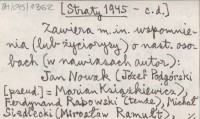 [Straty 1945 - c.d.]
Zawiera m.in. wspomnie-
nia (lub życiorysy) o nast. oso-
bach (w nawiasach autor):
Jan Nowak (Józef Podgórski
[pseud.] = Marian Książkiewicz),
Ferdynand Rabowski (tenże), Michał
Siedlecki (Mirosław Ramułt),